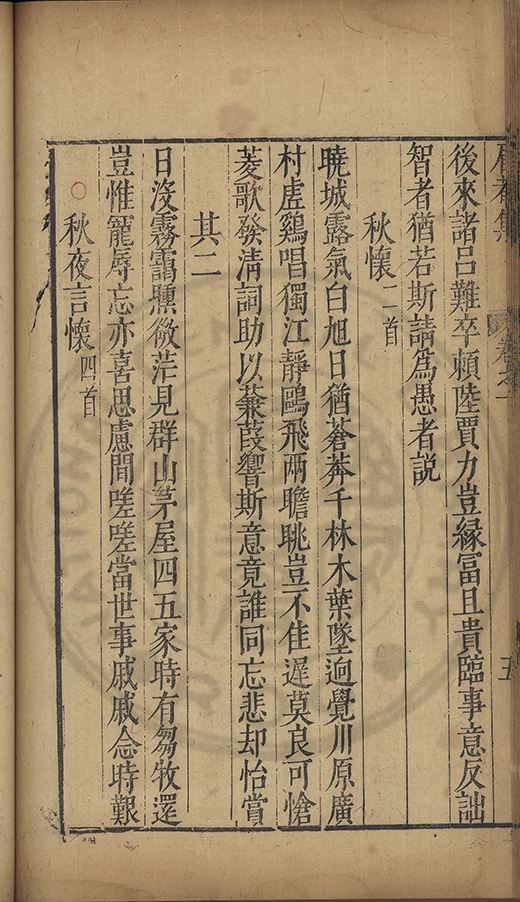 後來諸呂難卒賴陸賈力豈緣冨且貴臨事意反詘
智者猶若斯請爲愚者說
秋懷二首
曉城露氣白旭日猶蒼莽千林木葉墜逈覺川原廣
村虛鷄唱獨江靜鷗飛兩瞻眺豈不佳遲莫良可愴
菱歌發淸詞助以蒹葭響斯意竟誰同忘悲却怡賞
其二
日沒霧靄曛微茫見群山茅屋四五家時有芻牧還
豈惟寵辱忘亦喜思慮間嗟嗟當世事戚戚念時艱
秋夜言懷四首
五